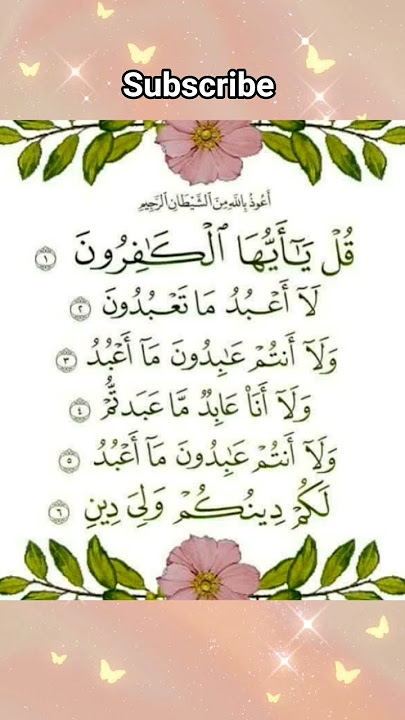 Subscribe
أعوذ بالله من الشيطان الرجيم
قُلْ يَـٰٓأَيُّهَا ٱلْكَـٰفِرُونَ ١
لَآ أَعْبُدُ مَا تَعْبُدُونَ ٢
وَلَآ أَنتُمْ عَـٰبِدُونَ مَآ أَعْبُدُ ٣
وَلَآ أَنَا۠ عَابِدٌ مَّا عَبَدتُّمْ ٤
وَلَآ أَنتُمْ عَـٰبِدُونَ مَآ أَعْبُدُ ٥
لَكُمْ دِينُكُمْ وَلِىَ دِينِ ٦